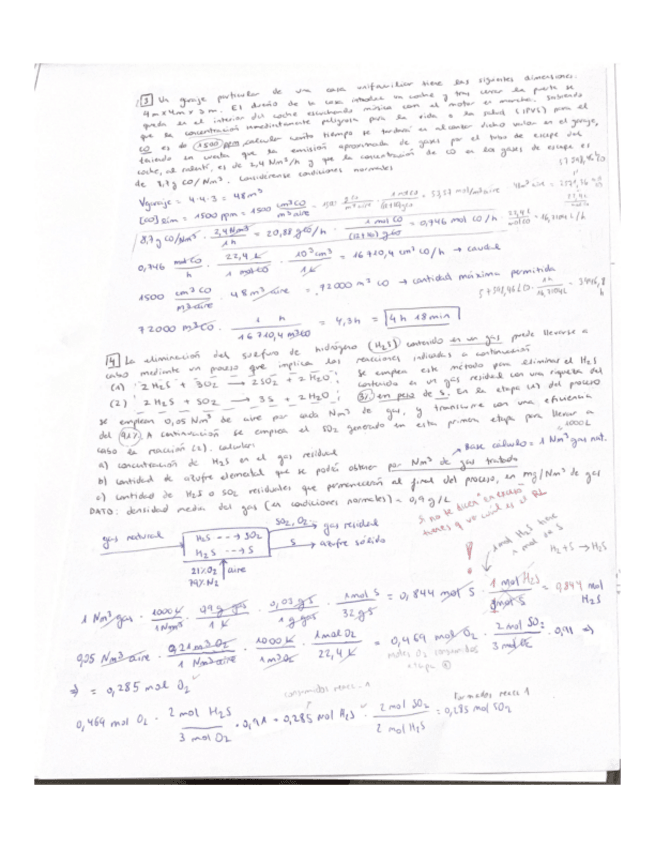 3 Un garaje particular de una casa unifamiliar tiene las siguientes dimensiones:
4m x 4m x 3m. El dueño de la casa introduce un coche y tras cerrar la puerta se
queda en el interior del coche escuchando música con el motor en marcha. Sabiendo
que la concentración inmediatamente peligrosa para la vida o la salud (IPVS) para el
CO es de 1500 ppm, calcular cuánto tiempo se tardará en alcanzar dicho valor en el garaje,
teniendo en cuenta que la emisión aproximada de gases por el tubo de escape del
coche, al ralentí, es de 2,4 Nm³/h y que la concentración de CO en los gases de escape es
de 8,7 g CO/Nm³. Considérense condiciones normales
Vgaraje = 4·4·3 = 48m³
[CO] lim = 1500 ppm = 1500 cm³CO / m³ aire
8,7 g CO/Nm³ · 2,4 Nm³ / 1 h = 20,88 g CO/h · 1 mol CO / (12+16) g CO = 0,746 mol CO/h
0,746 mol CO / h · 22,4 L / 1 mol CO · 10³ cm³ / 1 L = 16710,4 cm³ CO/h → caudal
1500 cm³ CO / m³ aire · 48 m³ aire = 72000 m³ CO → cantidad máxima permitida
72000 m³CO · 1 h / 16710,4 m³CO = 4,3h = 4h 18min
4 La eliminación del sulfuro de hidrógeno (H₂S) contenido en un gas puede llevarse a
cabo mediante un proceso que implica las reacciones indiadas a continuación
(1) 2H₂S + 3O₂ → 2SO₂ + 2H₂O
(2) 2H₂S + SO₂ → 3S + 2H₂O
Se emplea este método para eliminar el H₂S
contenido en un gas residual con una riqueza del
3% en peso de S. En la etapa (1) del proceso
se emplean 0,05 Nm³ de aire por cada Nm³ de gas, y transcurre con una eficiencia
del 91%. A continuación se emplea el SO₂ generado en esta primera etapa para llevar a
cabo la reacción (2). calcular:
1000L
Base cálculo = 1 Nm³ gas nat.
a) concentración de H₂S en el gas residual
b) cantidad de azufre elemental que se podrá obtener por Nm³ de gas tratado
c) cantidad de H₂S o SO₂ residuales que permanecerán al final del proceso, en mg/Nm³ de gas
DATO: densidad media del gas (en condiciones normales) = 0,9 g/L
gas natural
H₂S --→ SO₂
H₂S --→ S
SO₂, O₂ gas residual
S → azufre sólido
21% O₂ aire
79% N₂
1 mol H₂S tiene
1 mol de S
H₂ + S → H₂S
1 Nm³ gas · 1000 L / 1 Nm³ · 0,9 g gas / 1 L · 0,03 g S / 1 g gas · 1 mol S / 32 g S = 0,844 mol S · 1 mol H₂S / 1 mol S = 0,844 mol H₂S
0,05 Nm³ aire · 0,21 m³ O₂ / 1 Nm³ aire · 1000 L / 1 m³ O₂ · 1 mol O₂ / 22,4 L = 0,469 mol O₂ · 2 mol SO₂ / 3 mol O₂ · 0,91 ⇒
moles O₂ consumidos
etapa
⇒ = 0,285 mol O₂
consumidos reacc. 1
formados reacc 1
0,469 mol O₂ · 2 mol H₂S / 3 mol O₂ · 0,91 = 0,285 mol H₂S · 2 mol SO₂ / 2 mol H₂S = 0,285 mol SO₂